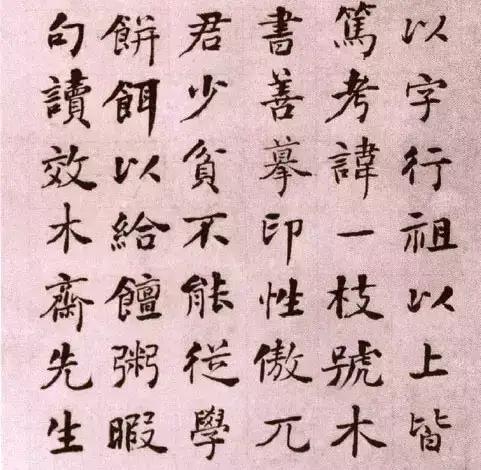 以字行祖以上皆
篤考諱一枝號木
書善摹印性傲兀
君少貧不能從學
餅餌以給饘粥暇
句讀效木齋先生